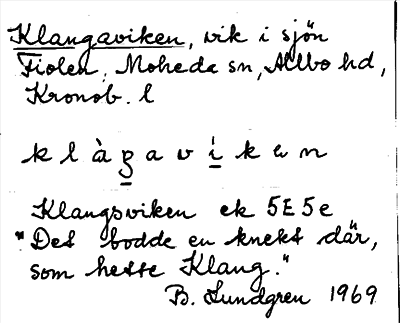 Klangaviken, vik i sjön
Fiolen, Moheda sn, Allbo hd,
Kronob. l
k l à g a v i k e n
Klangsviken ek 5E5e
"Det bodde en knekt där,
som hette Klang."
B. Lundgren 1969